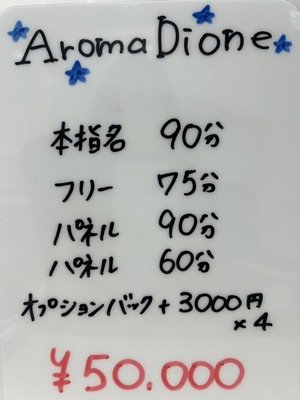 Aroma Dione
本指名 90分
フリー 75分
パネル 90分
パネル 60分
オプションバック + 3000円
× 4
¥50.000